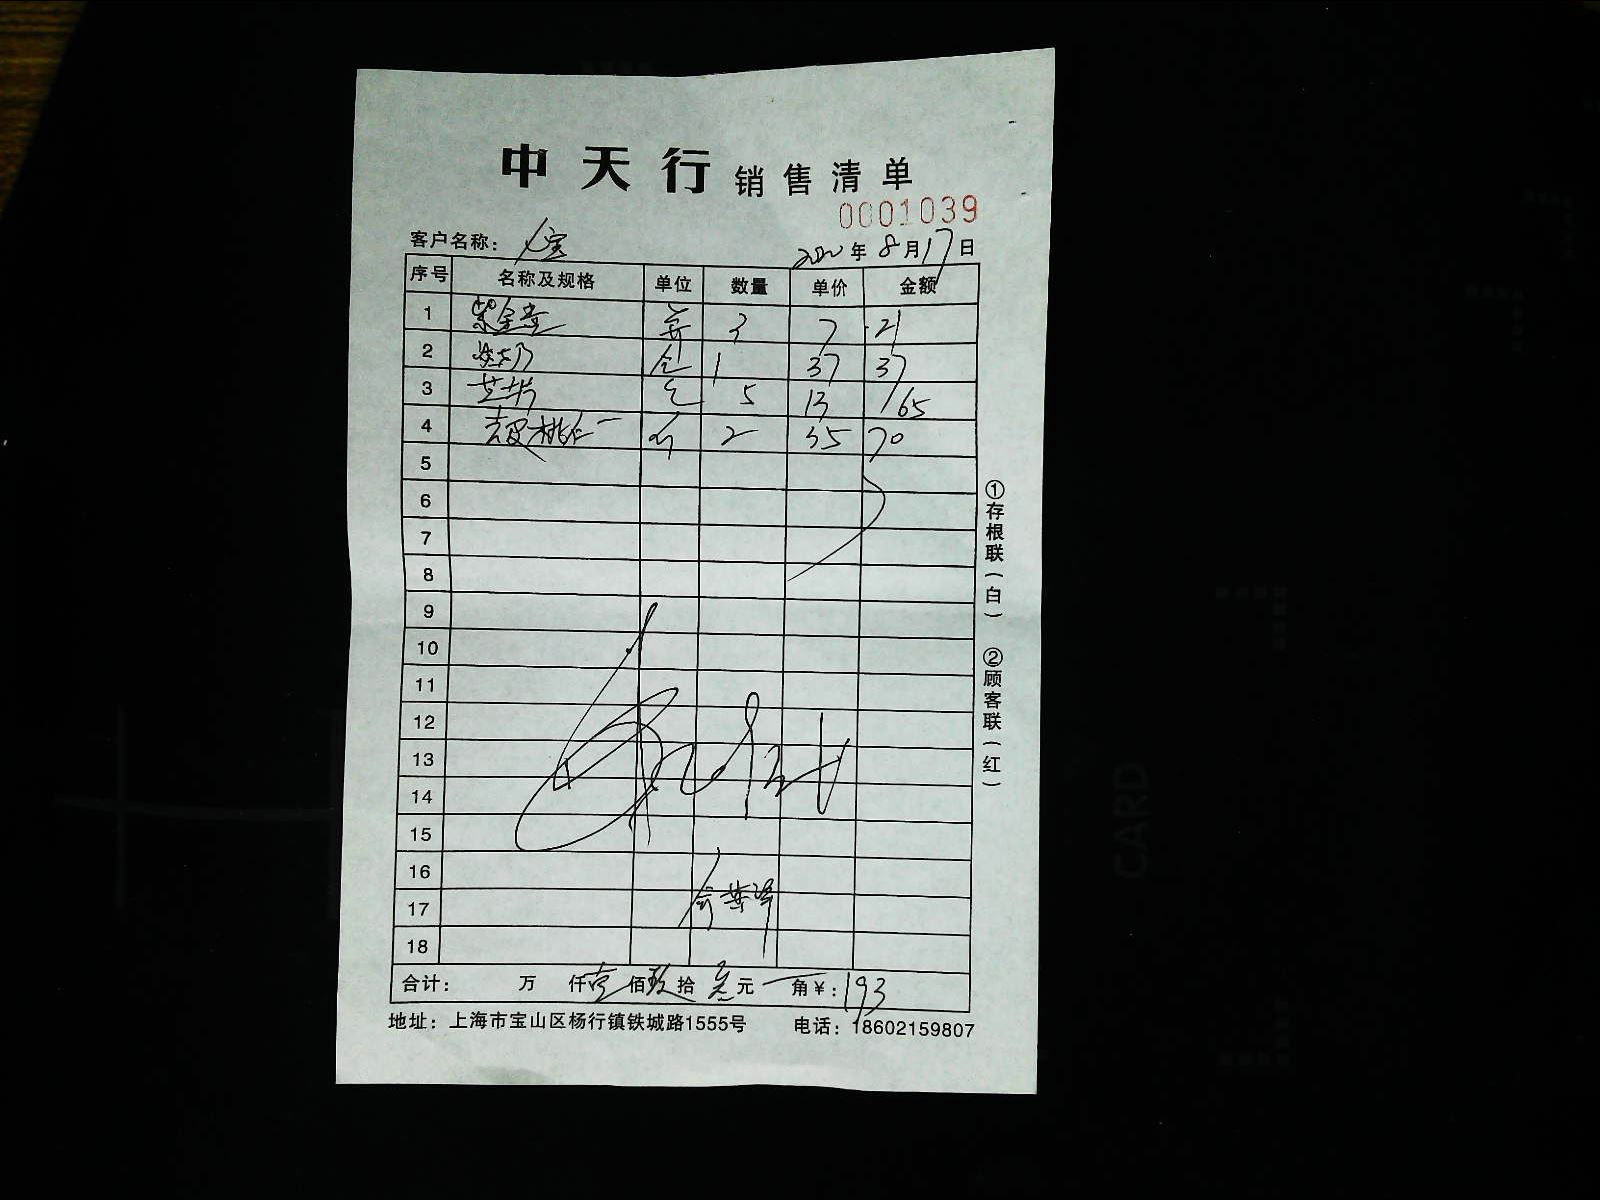 中天行 销售清单
0001039
客户名称： 宝
2020年8月17日
序号 名称及规格 单位 数量 单价 金额
1 3 7 21
2 1 37 37
3 5 13 65
4 去皮桃仁 斤 2 35 70
5
6
7
8
9
10
11
12
13
14
15
16
17
18
合计： 万 仟壹佰玖拾叁元 角￥：193
地址：上海市宝山区杨行镇铁城路1555号 电话：18602159807
①存根联（白） ②顾客联（红）
CARD